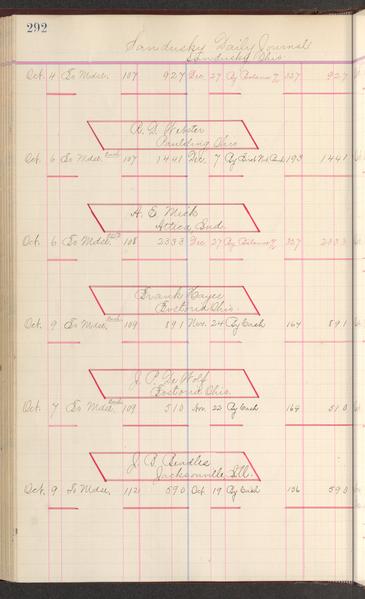 292
Sandusky Daily Journal
Sandusky Ohio
Oct. 4 To Mdse. 107 927 Dec. 27 By Balance 327 927
R. D. Webster
Paulding Ohio
Oct. 6 To Mdse. 107 1441 Dec. 7 By 193 1441
A. E. Mick
Attica, Ind.
Oct. 6 To Mdse. 108 2333 Dec. 27 By Balance 327 2333
Frank Hayes
Fostoria Ohio.
Oct. 9 To Mdse. 109 891 Nov. 24 By Cash 164 891
J. P. De Wolf
Fostoria Ohio.
Oct. 7 To Mdse. 109 510 Nov. 22 By Cash 164 510
J. B. Beadles
Jacksonville, Ill.
Oct. 9 To Mdse. 112 590 Oct. 19 By Cash 136 590